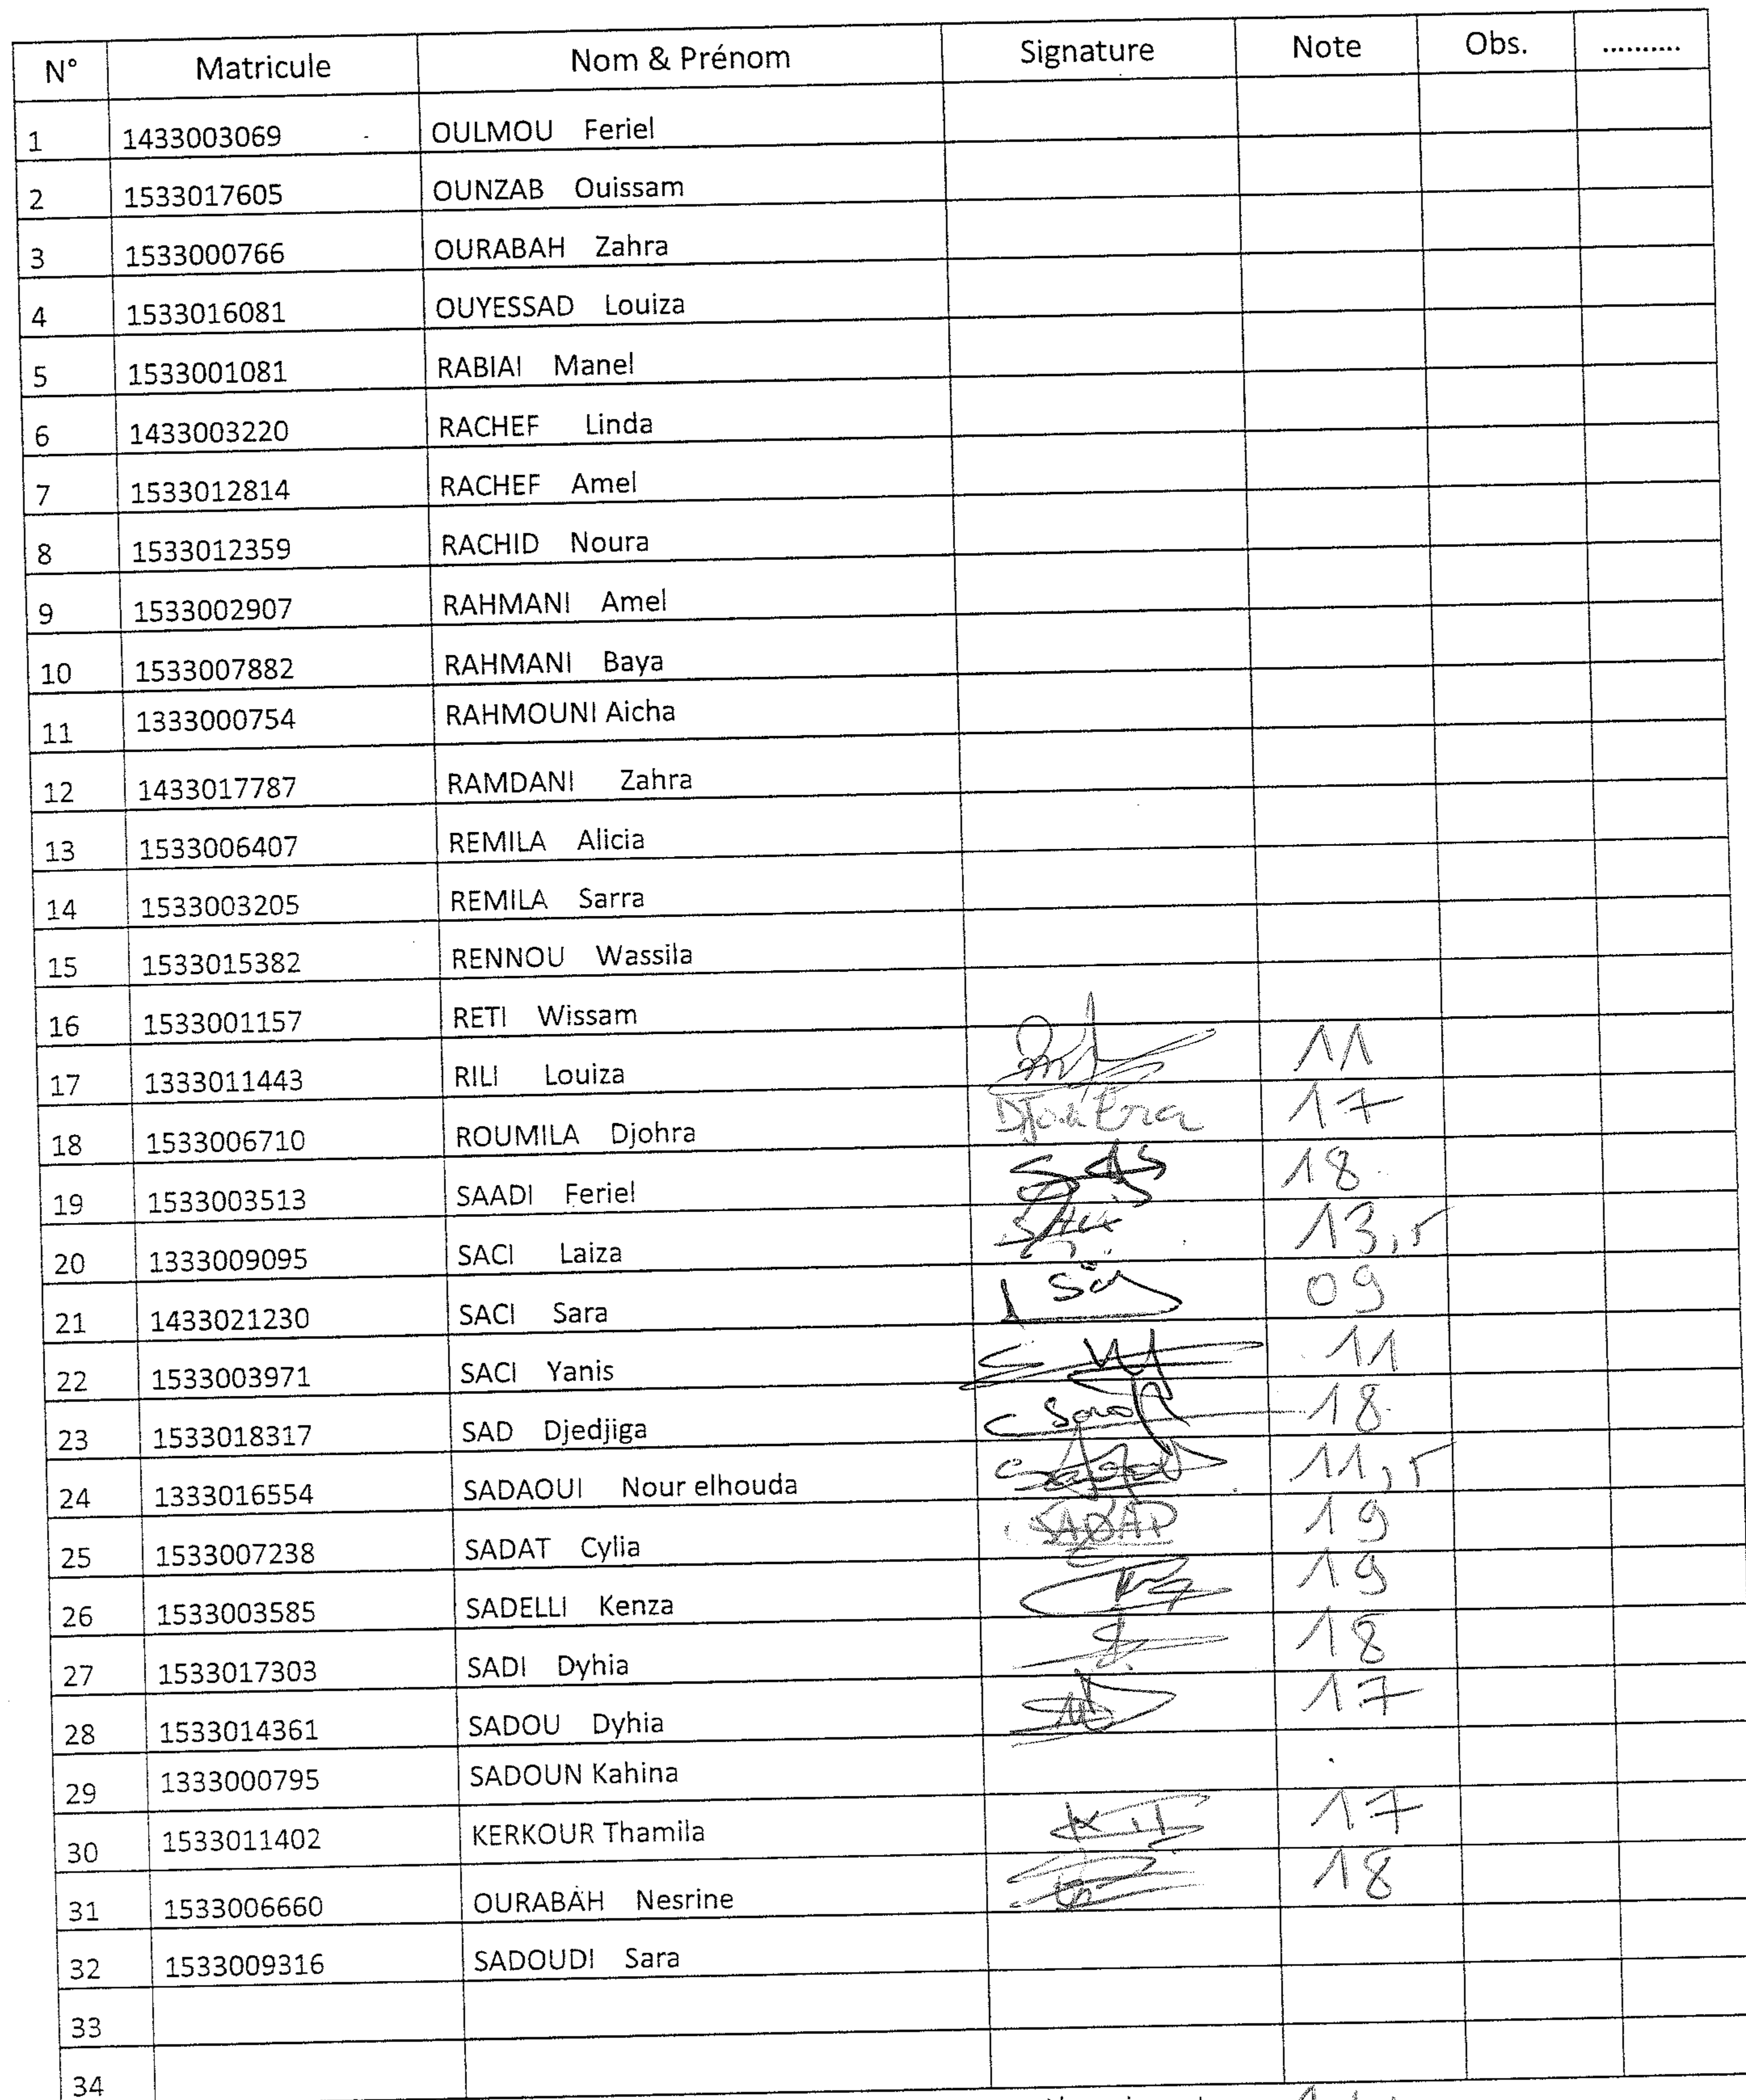 N° Matricule Nom & Prénom Signature Note Obs. ..........
1 1433003069 OULMOU Feriel
2 1533017605 OUNZAB Ouissam
3 1533000766 OURABAH Zahra
4 1533016081 OUYESSAD Louiza
5 1533001081 RABIAI Manel
6 1433003220 RACHEF Linda
7 1533012814 RACHEF Amel
8 1533012359 RACHID Noura
9 1533002907 RAHMANI Amel
10 1533007882 RAHMANI Baya
11 1333000754 RAHMOUNI Aicha
12 1433017787 RAMDANI Zahra
13 1533006407 REMILA Alicia
14 1533003205 REMILA Sarra
15 1533015382 RENNOU Wassila
16 1533001157 RETI Wissam
17 1333011443 RILI Louiza 11
18 1533006710 ROUMILA Djohra Djouhra 17
19 1533003513 SAADI Feriel 18
20 1333009095 SACI Laiza 13,5
21 1433021230 SACI Sara 09
22 1533003971 SACI Yanis 11
23 1533018317 SAD Djedjiga 18
24 1333016554 SADAOUI Nour elhouda 11,5
25 1533007238 SADAT Cylia 19
26 1533003585 SADELLI Kenza 19
27 1533017303 SADI Dyhia 18
28 1533014361 SADOU Dyhia 17
29 1333000795 SADOUN Kahina
30 1533011402 KERKOUR Thamila 17
31 1533006660 OURABAH Nesrine 18
32 1533009316 SADOUDI Sara
33
34